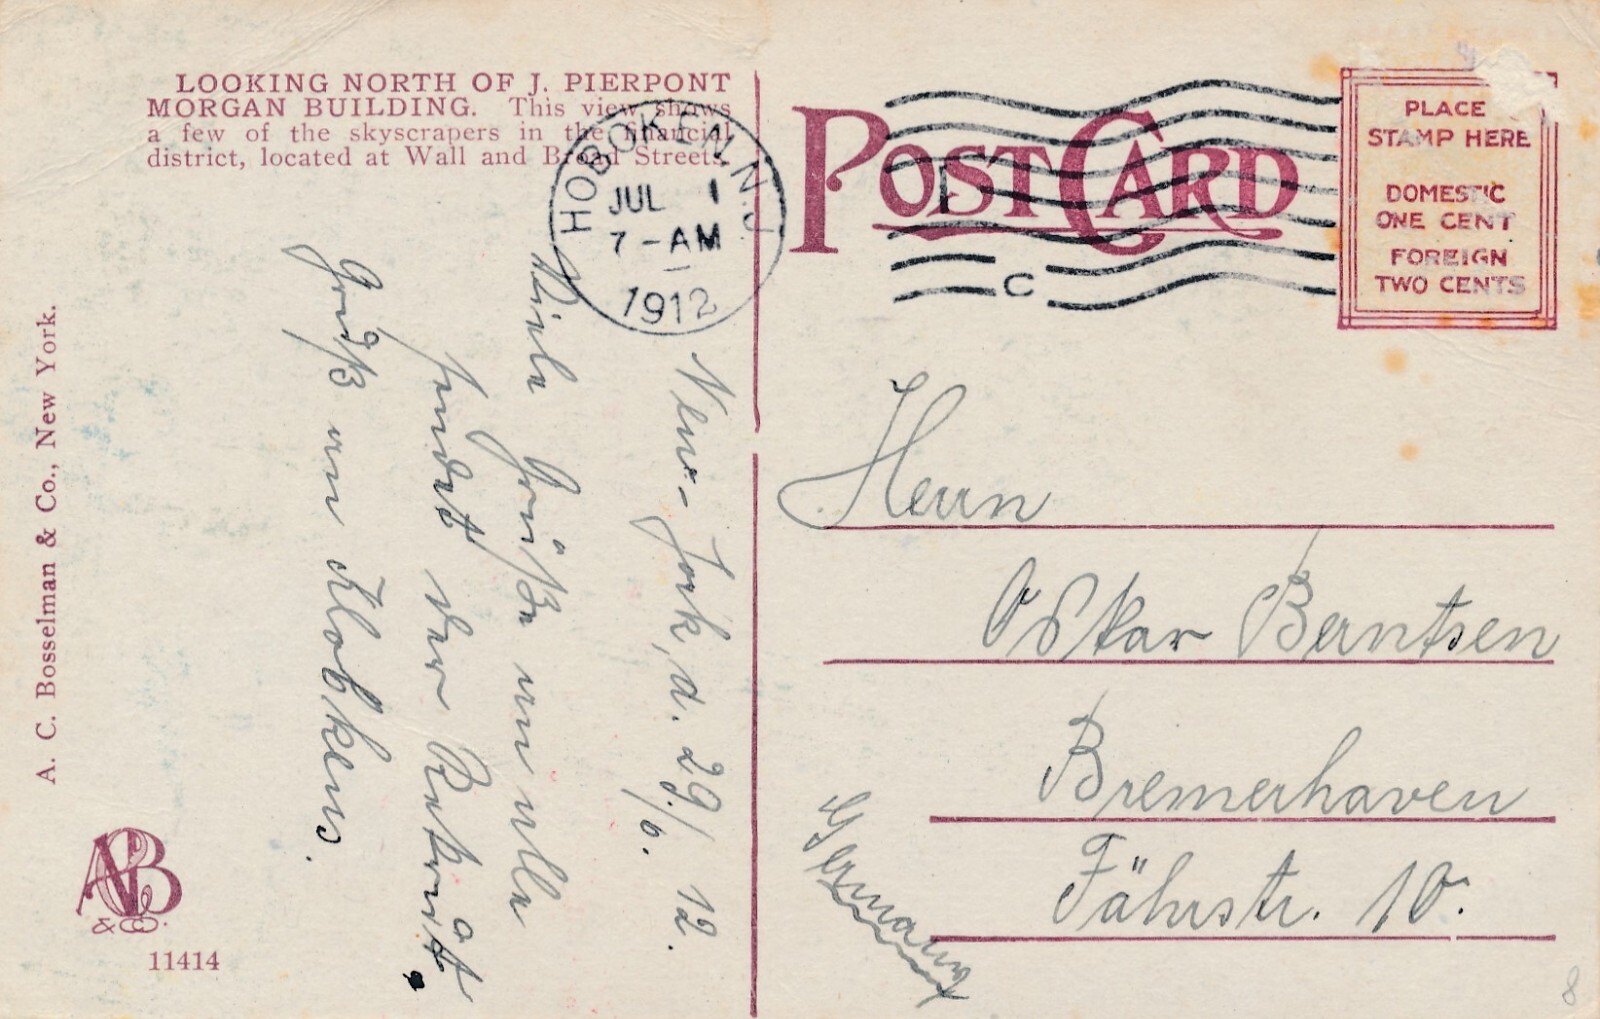 LOOKING NORTH OF J. PIERPONT
MORGAN BUILDING. This view shows
a few of the skyscrapers in the financial
district, located at Wall and Broad Streets.
HOBOKEN, N.J.
JUL 1
7-AM
1912
C
POST CARD
PLACE
STAMP HERE
DOMESTIC
ONE CENT
FOREIGN
TWO CENTS
New-York, d. 29/6. 12.
Viele Grüße an alle
sendet der
Gruß an
Herrn
Oskar Berntsen
Bremerhaven
Fährstr. 10.
Germany
A. C. Bosselman & Co., New York.
ACB
& CO.
11414
8